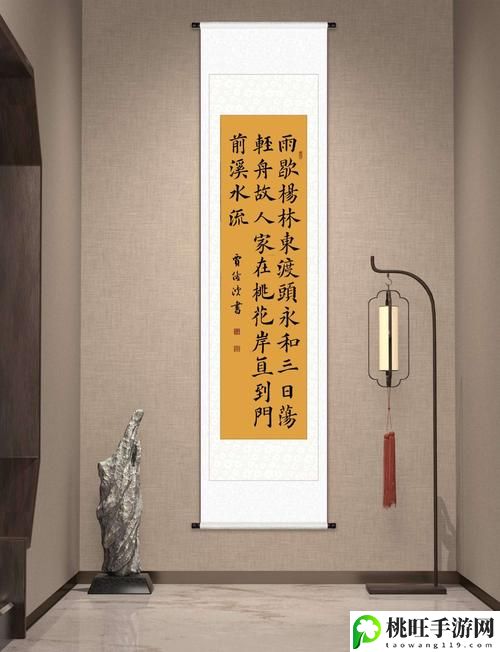 雨歇楊林東渡頭永和三日蕩
輕舟故人家在桃花岸直到門
前溪水流
書
桃旺手游网
taowang119.com